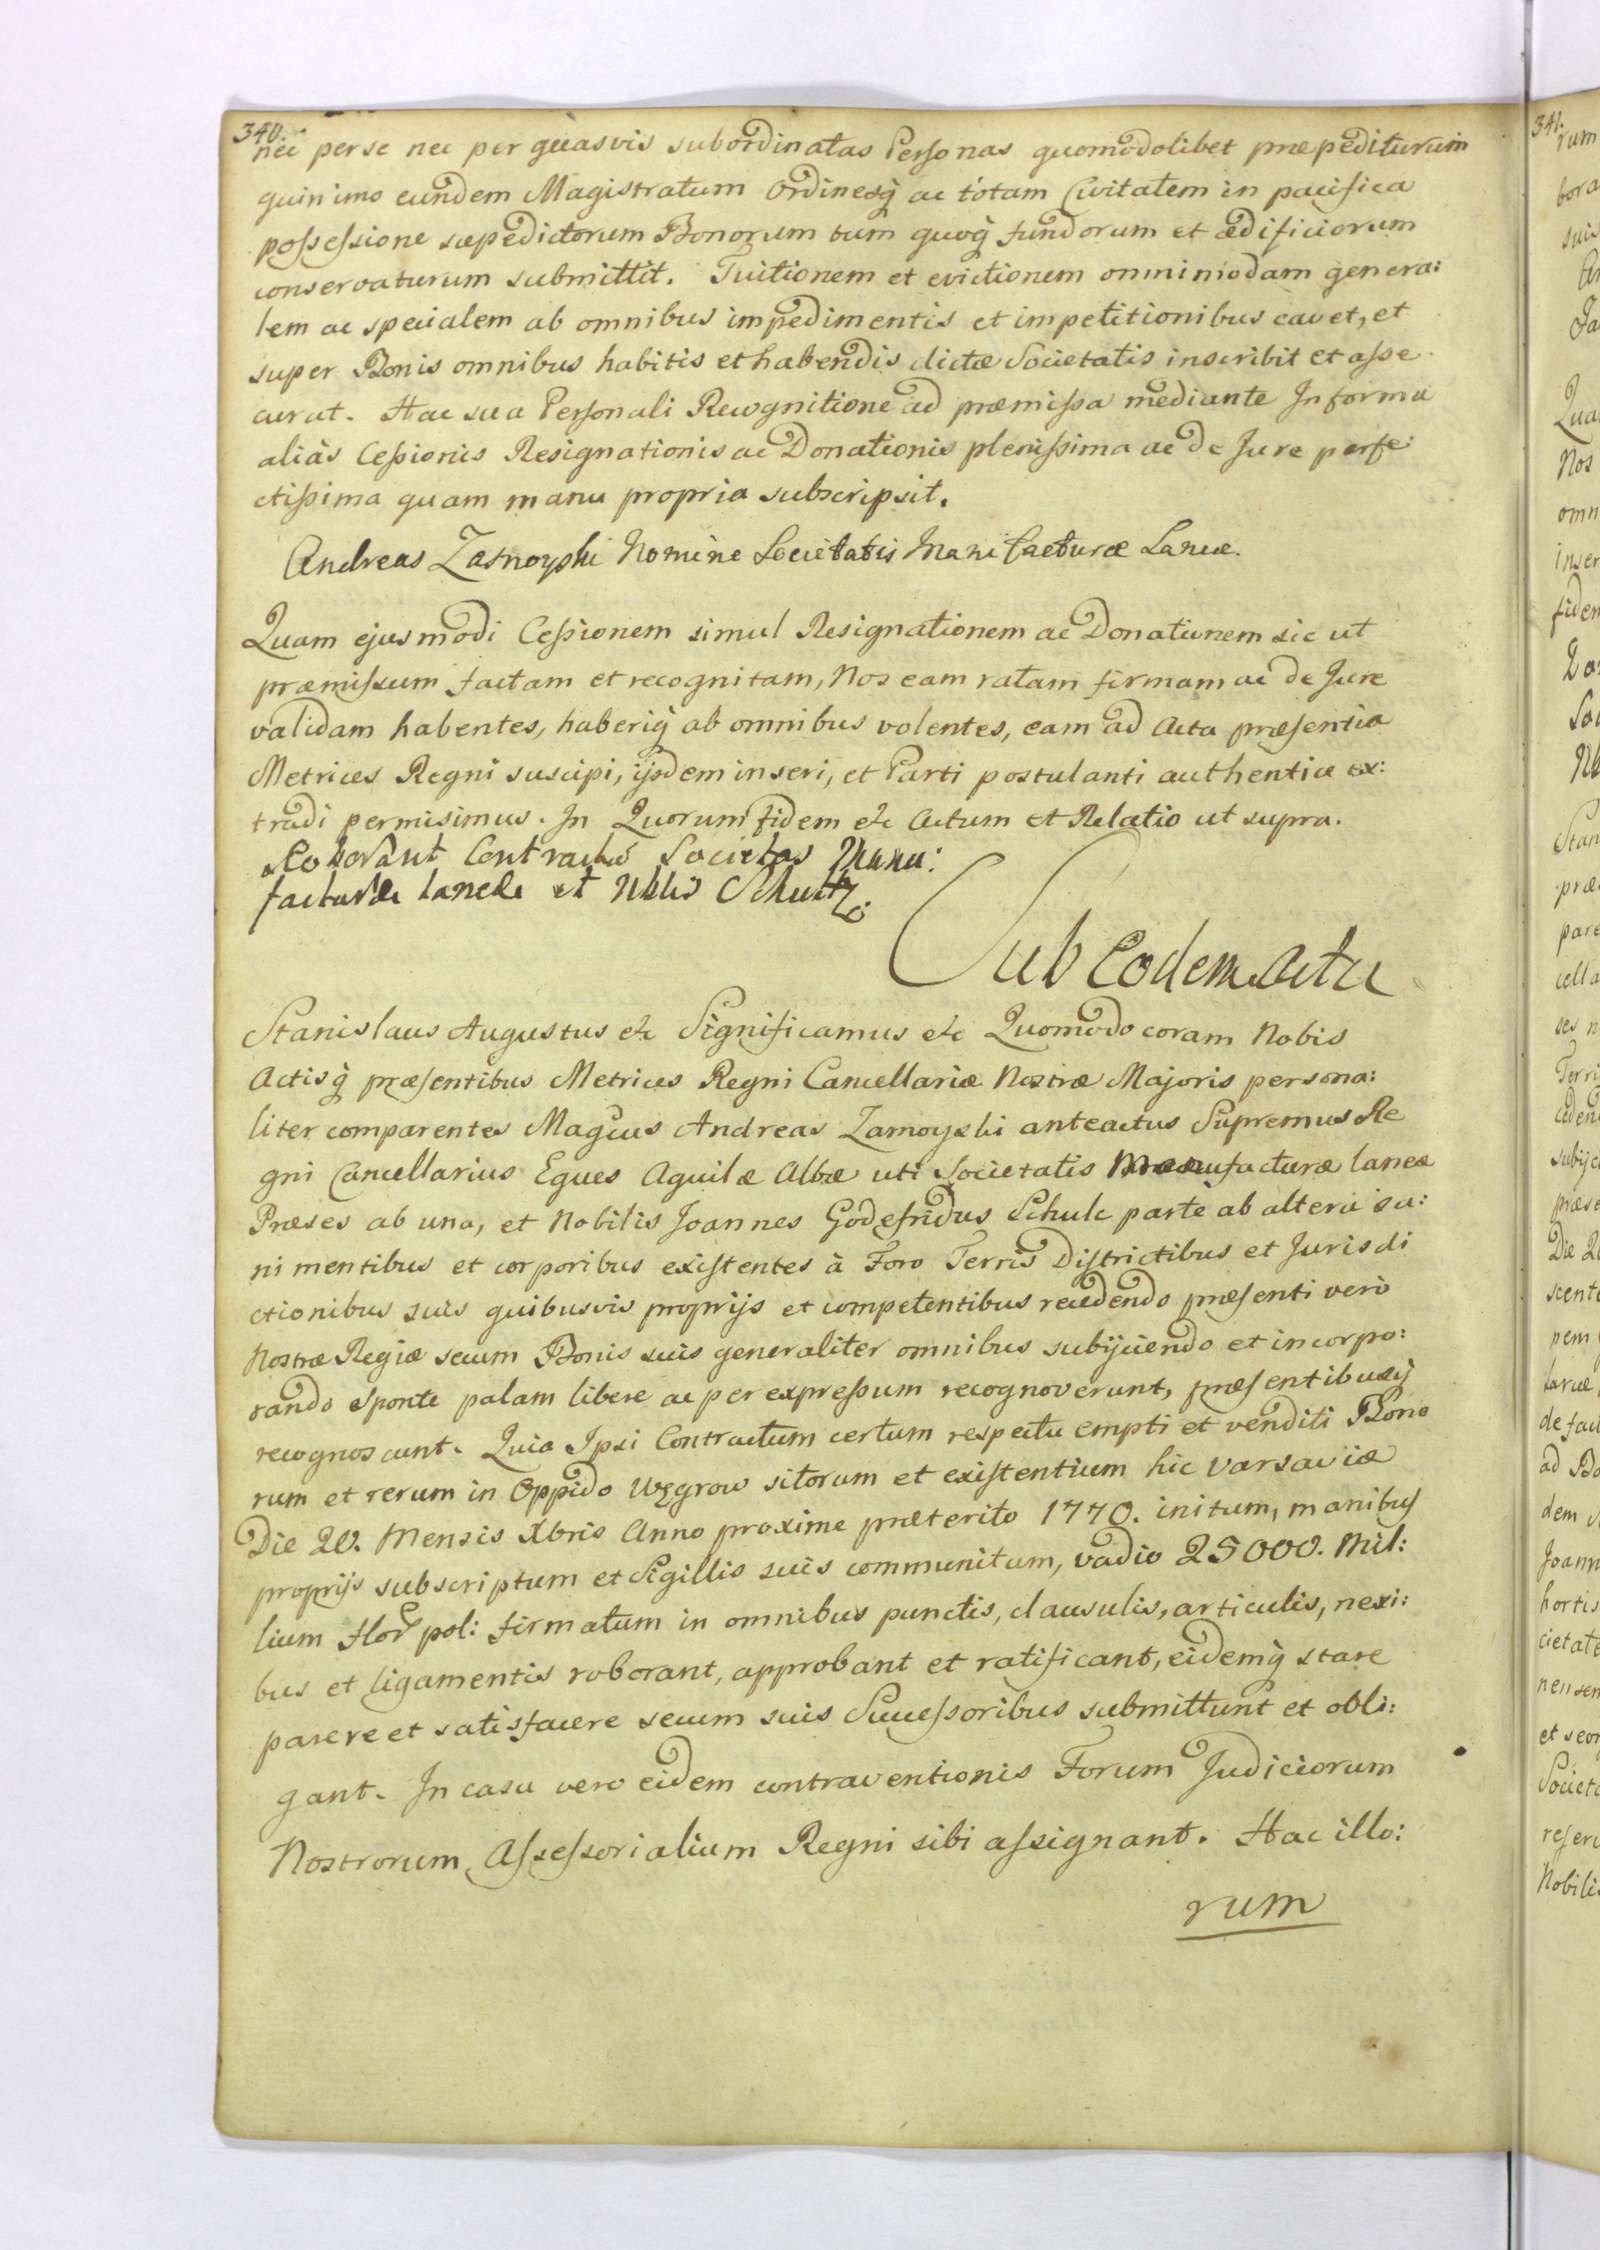 340.
nec per se nec per quasvis subordinatas Personas quomodolibet præpediturum
quinimo eundem Magistratum Ordinesq̃ ac totam Civitatem in pacifica
possessione sæpedictorum Bonorum tum quoq̃ fundorum et ædificiorum
conservaturum submittit. Tuitionem et evictionem omnimodam genera:
lem ac specialem ab omnibus impedimentis et impetitionibus cavet, et
super Bonis omnibus habitis et habendis dictæ Societatis inscribit et asse
curat. Hac sua Personali Recognitione ad præmissa mediante In forma
aliàs Cessionis Resignationis ac Donationis plenissima ac de Jure perfe:
ctissima quam manu propria subscripsit.
Andreas Zamoyski Nomine Societatis Manifacturæ Lanæ.
Quam ejusmodi Cessionem simul Resignationem ac Donationem sic ut
præmissum factam et recognitam, Nos eam ratam firmam ac de Jure
validam habentes, haberiq̃ ab omnibus volentes, eam ad Acta præsentia
Metrices Regni suscipi, ijsdem inseri, et Parti postulanti authentice ex:
tradi permisimus. In Quorum fidem etc Actum et Relatio ut supra.
Roborant Contractũ Societas Manu:
facturæ laneæ et Nblis Schultz.
Sub Eodem Actu
Stanislaus Augustus etc Significamus etc Quomodo coram Nobis
Actisq̃ præsentibus Metrices Regni Cancellariæ Nostræ Majoris persona:
liter comparentes Magcus Andreas Zamoyski anteactus Supremus Re
gni Cancellarius Eques Aquilæ Albæ uti Societatis Manufacturæ laneæ
Præses ab una, et Nobilis Joannes Godefridus Schulc parte ab altera sa:
ni mentibus et corporibus existentes à Foro Terris Districtibus et Jurisdi
ctionibus suis quibusvis proprijs et competentibus recedendo præsenti verò
Nostræ Regiæ secum Bonis suis generaliter omnibus subijciendo et incorpo:
rando sponte palam libere ac per expressum recognoverunt, præsentibusq̃
recognoscunt. Quia Ipsi Contractum certum respectu empti et venditi Bono
rum et rerum in Oppido Węgrow sitorum et existentium hic Varsaviæ
Die 20. Mensis Xbris Anno proxime præterito 1770. initum, manibus
proprijs subscriptum et Sigillis suis communitum, vadio 25000. Mil:
lium Flor pol: firmatum in omnibus punctis, clausulis, articulis, nexi:
bus et ligamentis roborant, approbant et ratificant, eidemq̃ stare
parere et satisfacere secum suis Successoribus submittunt et obli:
gant. In casu vero eidem contraventionis Forum Judiciorum
Nostrorum Assessorialium Regni sibi assignant. Hac illo:
rum
341.
rum